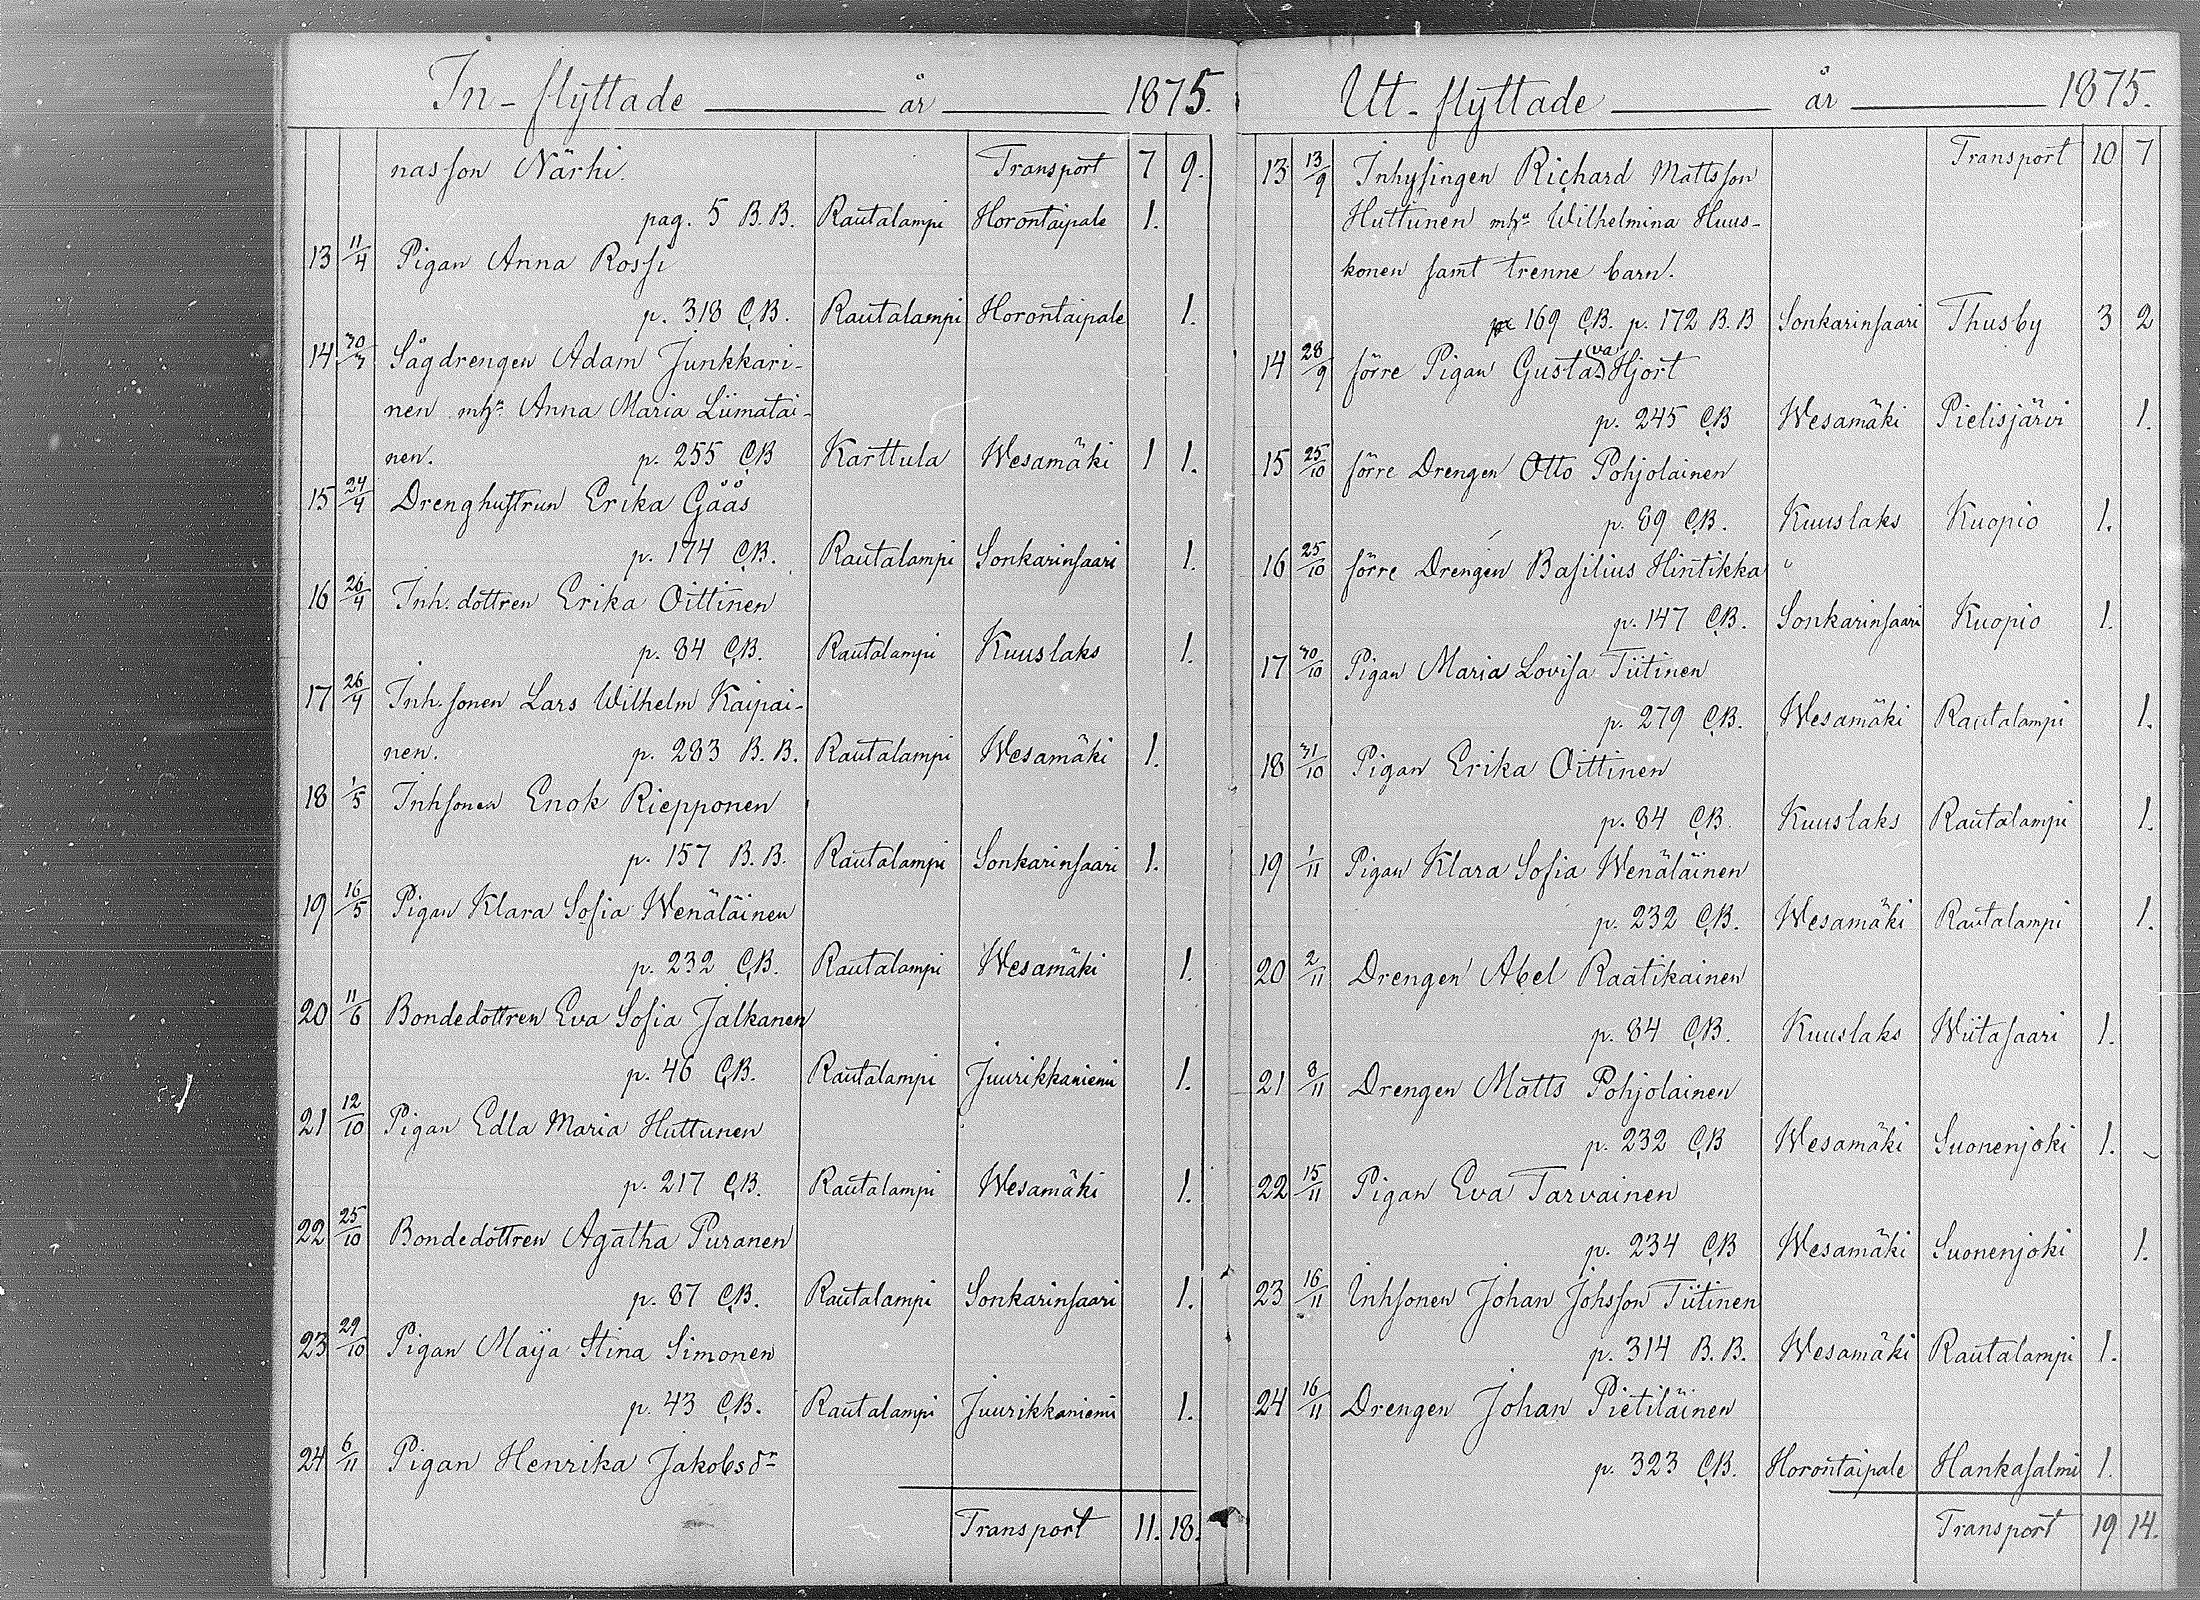 In-flyttade år 1875.
nasson Närhi. Transport 7 9.
pag. 5 B.B. Rautalampi Horontaipale 1.
13 11/4 Pigan Anna Rossi
p. 318 C.B. Rautalampi Horontaipale 1.
14 30/3 Sågdrengen Adam Junkkari-
nen mhu Anna Maria Liimatai-
nen. p. 255 C.B Karttula Wesamäki 1 1.
15 24/4 Drenghustrun Erika Gåås
p. 174 C.B. Rautalampi Sonkarinsaari 1.
16 26/4 Inh. dottren Erika Oittinen
p. 84 C.B. Rautalampi Kuuslaks 1.
17 26/4 Inh. sonen Lars Wilhelm Kaipai-
nen. p. 283 B.B. Rautalampi Wesamäki 1.
18 1/5 Inhsonen Enok Riepponen
p. 157 B.B. Rautalampi Sonkarinsaari 1.
19 16/5 Pigan Klara Sofia Wenäläinen
p. 232 C.B. Rautalampi Wesamäki 1.
20 11/6 Bondedottren Eva Sofia Jalkanen
p. 46 C.B. Rautalampi Juurikkaniemi 1.
21 12/10 Pigan Edla Maria Huttunen
p. 217 C.B. Rautalampi Wesamäki 1.
22 25/10 Bondedottren Agatha Puranen
p. 87 C.B. Rautalampi Sonkarinsaari 1.
23 29/10 Pigan Maija Stina Simonen
p. 43 C.B. Rautalampi Juurikkaniemi 1.
24 6/11 Pigan Henrika Jakobsdr
Transport 11. 18.
Ut-flyttade år 1875.
Transport 10 7
13 13/9 Inhysingen Richard Mattsson
Huttunen mhu Wilhelmina Huus-
konen samt trenne barn.
169 C.B. p. 172 B.B Sonkarinsaari Thusby 3 2
14 28/9 förre Pigan Gustava Hjort
p. 245 C.B Wesamäki Pielisjärvi 1.
15 25/10 förre Drengen Otto Pohjolainen
p. 89 C.B. Kuuslaks Kuopio 1.
16 25/10 förre Drengen Basilius Hintikka
p. 147 C.B. Sonkarinsaari Kuopio 1.
17 30/10 Pigan Maria Lovisa Tiitinen
p. 279 C.B. Wesamäki Rautalampi 1.
18 31/10 Pigan Erika Oittinen
p. 84 C.B. Kuuslaks Rautalampi 1.
19 1/11 Pigan Klara Sofia Wenäläinen
p. 232 C.B. Wesamäki Rautalampi 1.
20 2/11 Drengen Abel Raatikainen
p. 84 C.B. Kuuslaks Wiitasaari 1.
21 8/11 Drengen Matts Pohjolainen
p. 232 C.B Wesamäki Suonenjoki 1.
22 15/11 Pigan Eva Tarvainen
p. 234 C.B Wesamäki Suonenjoki 1.
23 16/11 Inhsonen Johan Johsson Tiitinen
p. 314 B.B. Wesamäki Rautalampi 1.
24 16/11 Drengen Johan Pietiläinen
p. 323 C.B. Horontaipale Hankasalmi 1.
Transport 19 14.